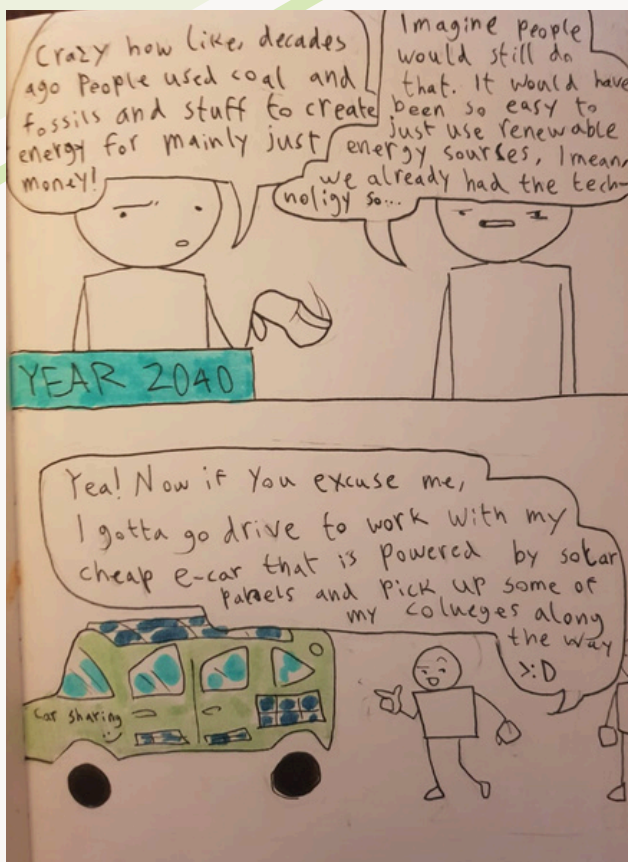 Crazy how like, decades
ago people used coal and
fossils and stuff to create
energy for mainly just
money!
Imagine people
would still do
that. It would have
been so easy to
just use renewable
energy sourses, I mean,
we already had the tech-
noligy so...
YEAR 2040
Yea! Now if you excuse me,
I gotta go drive to work with my
cheap e-car that is powered by solar
panels and pick up some of
my colueges along
the way
>:D
Car sharing
:)